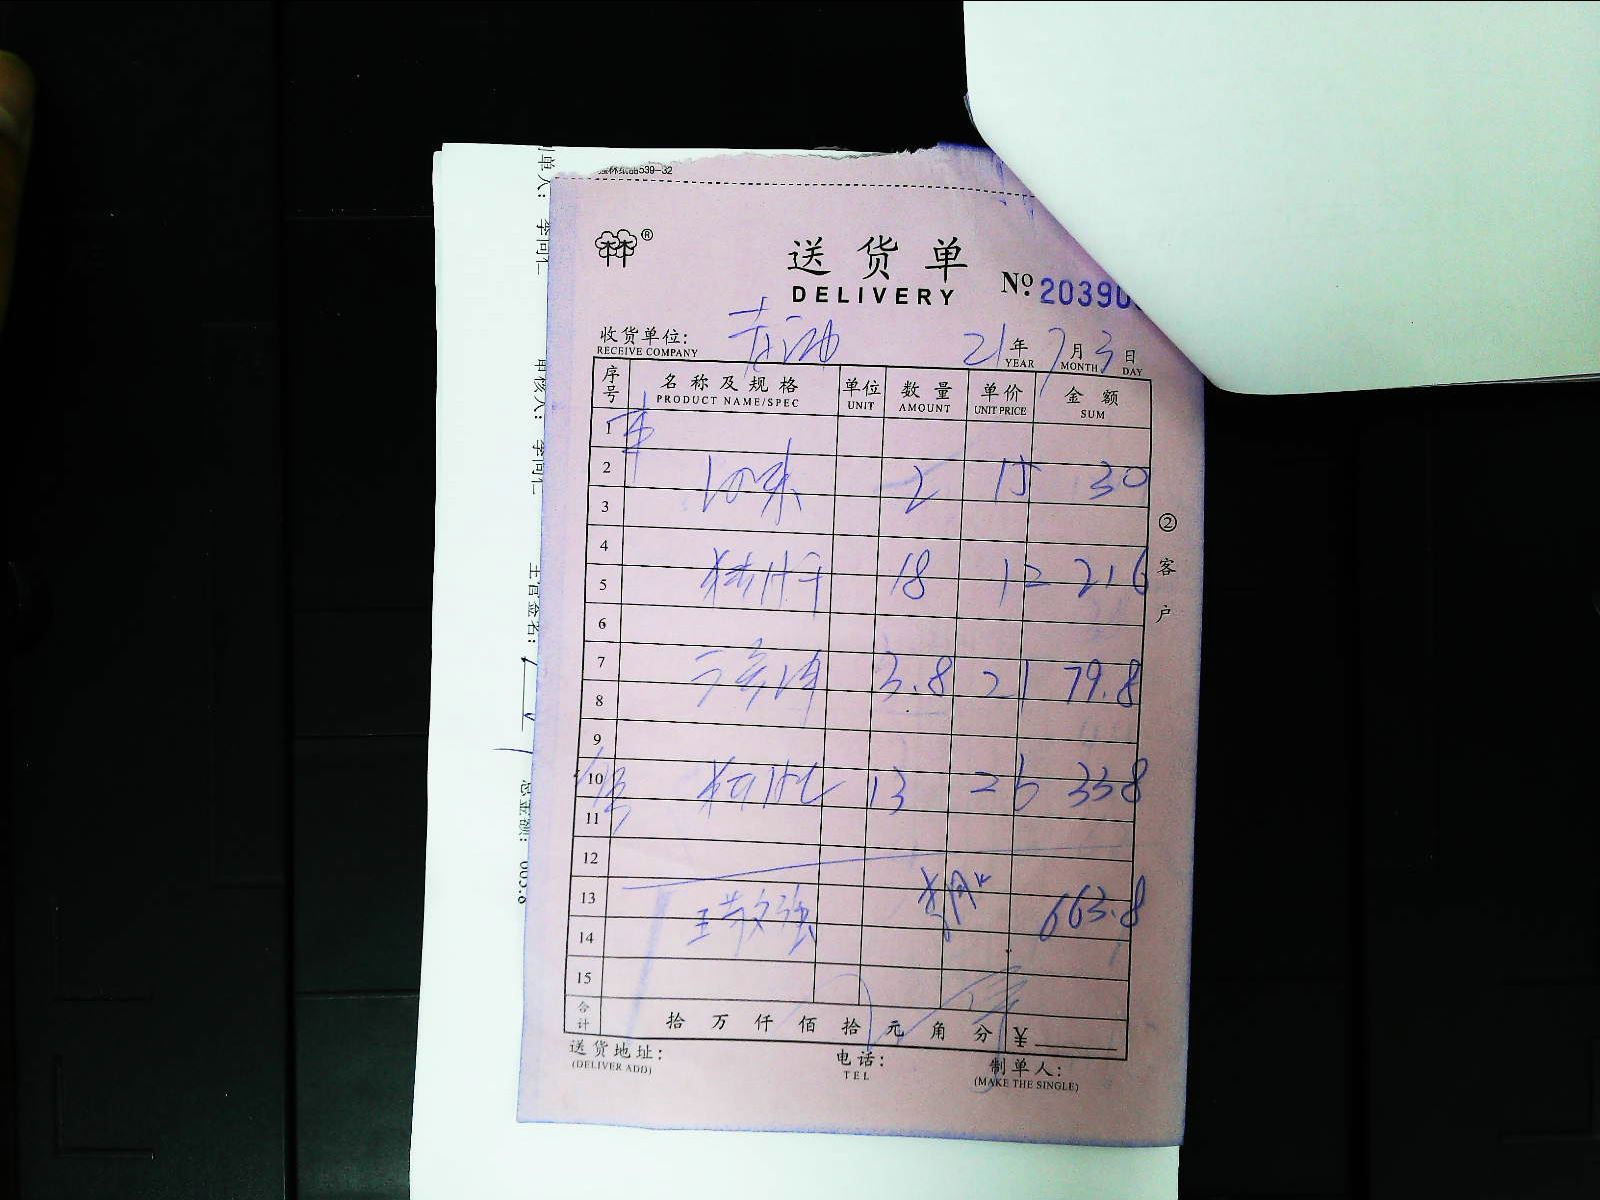 强林纸品539-32
®
送货单
DELIVERY
№ 20390
收货单位:
RECEIVE COMPANY
21 年 7 月 3 日
YEAR MONTH DAY
序号 名称及规格 单位 数量 单价 金额
PRODUCT NAME/SPEC UNIT AMOUNT UNIT PRICE SUM
1
2 2 15 30
3
4
5 18 12 216
6
7 3.8 21 79.8
8
9
10 13 26 338
11
12
13 663.8
14
15
合计 拾 万 仟 佰 拾 元 角 分 ¥
送货地址: 电话: 制单人:
(DELIVER ADD) TEL (MAKE THE SINGLE)
② 客户
制单人: 李同仁
审核人: 李同仁
主管签名:
总金额: 663.8